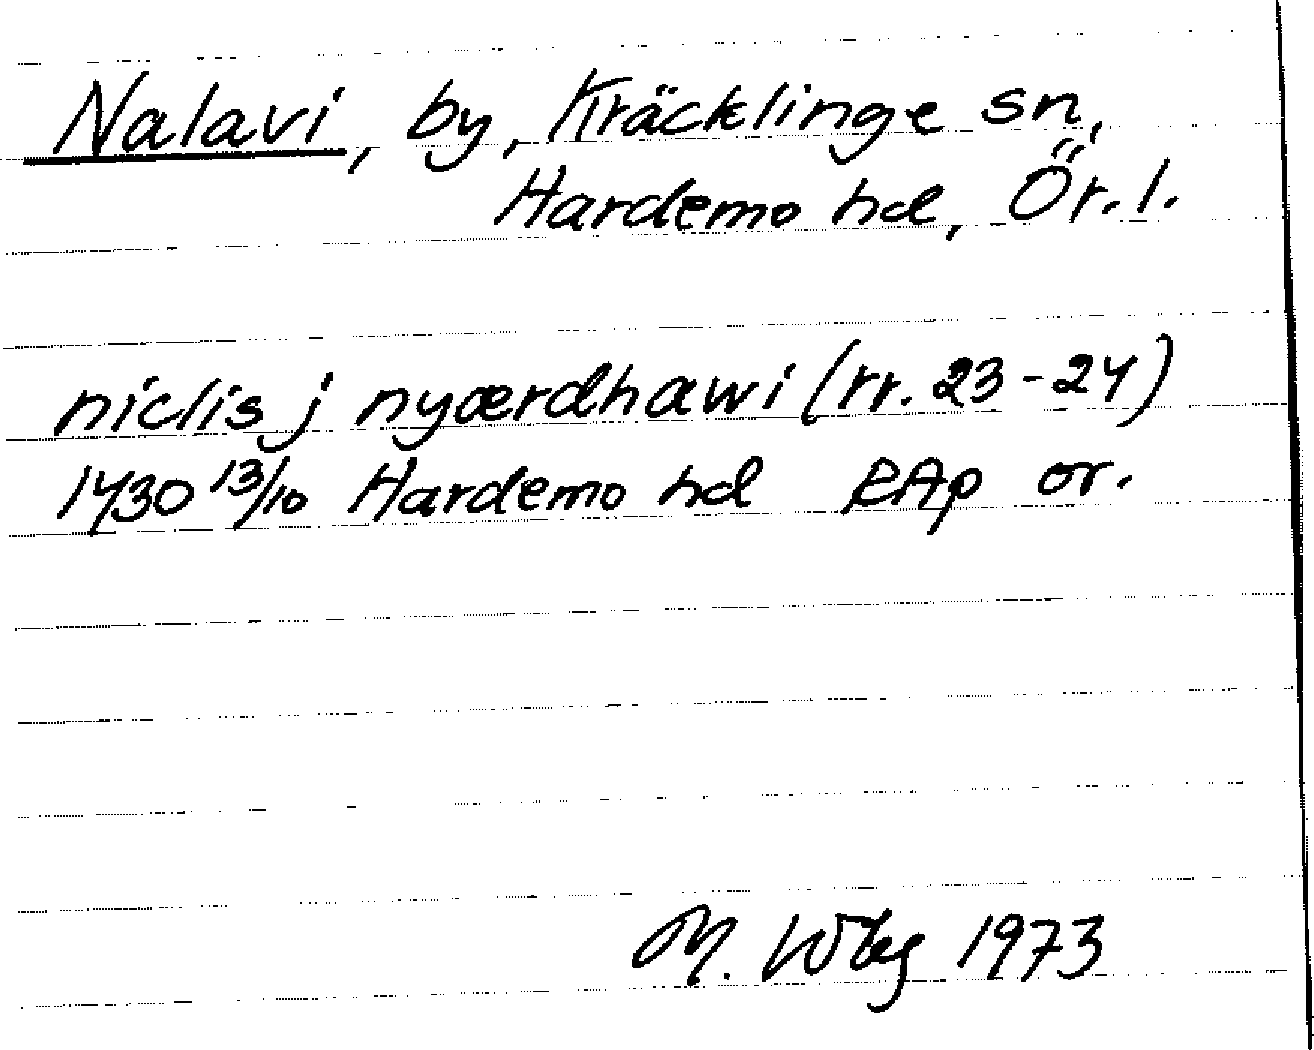 Nalavi, by, Kräcklinge sn,
Hardemo hd, Ör. l.
niclis j nyærdhawi (rr. 23-24)
1430 13/10 Hardemo hd RAp or.
M. Wbg 1973